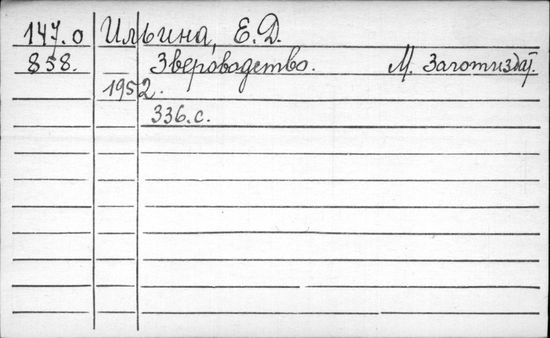 147.0 Ильина, Е.Д.
858. Звероводство. М. Заготиздат.
1952.
336.с.